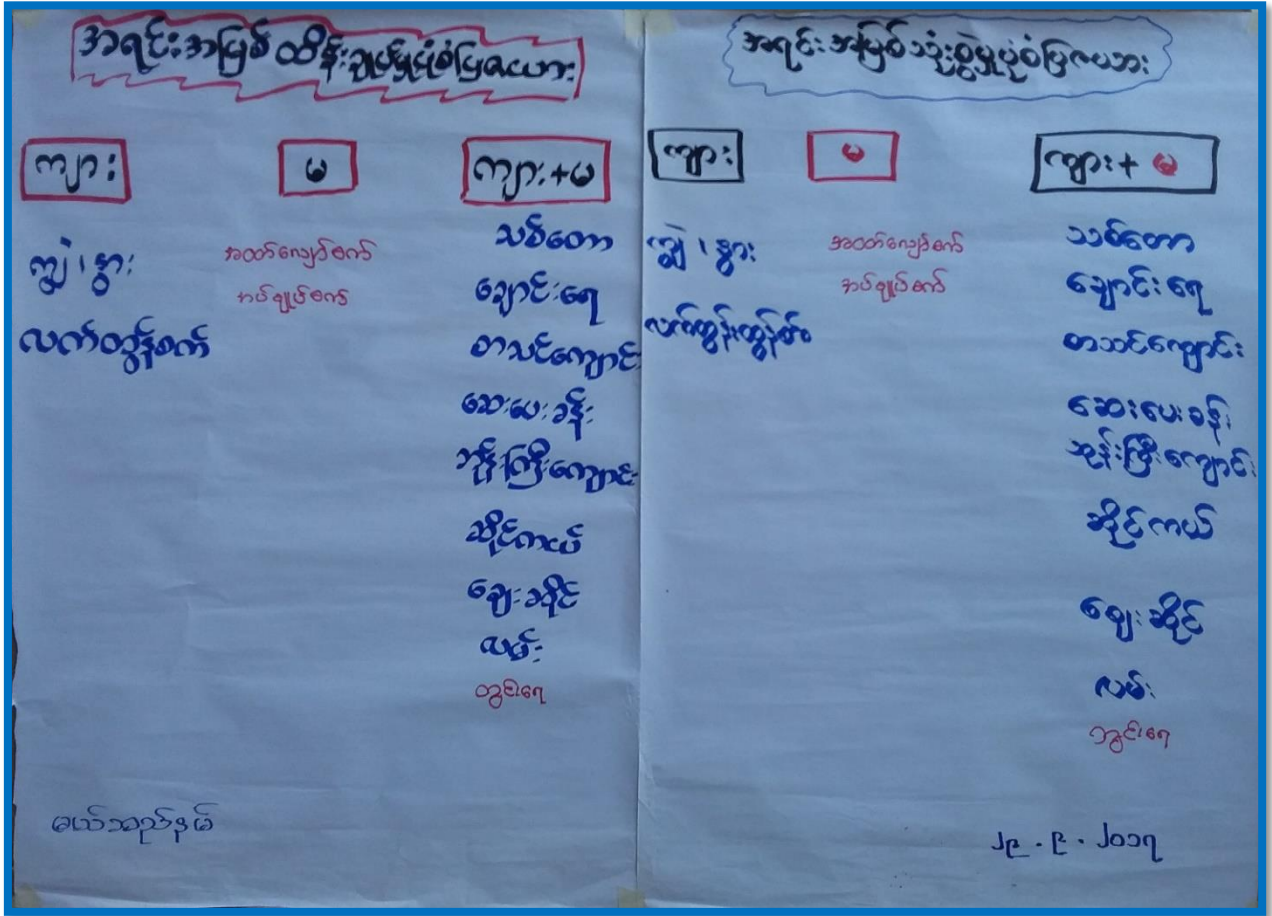 အရင်းအမြစ် ထိန်းချုပ်မှုပုံစံပြဇယား
ကျား
မ
ကျား+မ
ကျွဲ၊နွား
လက်တွန်စက်
အထက်လျှော်စက်
အပ်ချုပ်စက်
သစ်တော
ချောင်းရေ
စာသင်ကျောင်း
ဆေးပေးခန်း
ဘုန်းကြီးကျောင်း
ဆိုင်ကယ်
ဈေးဆိုင်
လမ်း
တွင်းရေ
အရင်းအမြစ်သုံးစွဲမှုပုံစံပြဇယား
ကျား
မ
ကျား+မ
ကျွဲ၊နွား
အထက်လျှော်စက်
အပ်ချုပ်စက်
သစ်တော
ချောင်းရေ
စာသင်ကျောင်း
ဆေးပေးခန်း
ဘုန်းကြီးကျောင်း
ဆိုင်ကယ်
ဈေးဆိုင်
လမ်း
တွင်းရေ
၂၉.၉.၂၀၁၇